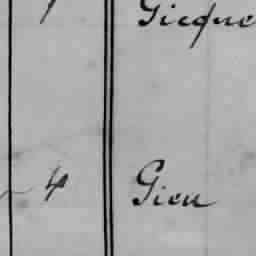 Gicque
4 Gieu